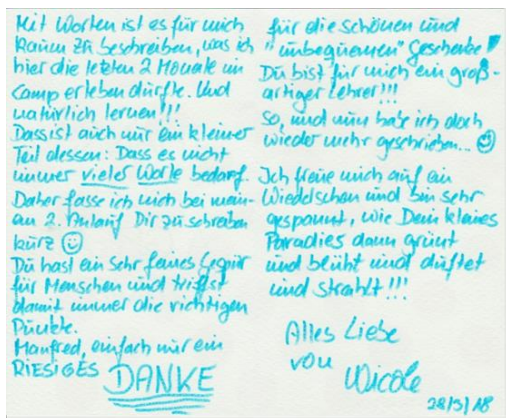 Mit Worten ist es für mich
kaum zu beschreiben, was ich
hier die letzten 2 Monate im
Camp erleben durfte. Und
natürlich lernen!!!
Das ist auch nur ein kleiner
Teil dessen: Dass es nicht
immer vieler Worte bedarf.
Daher fasse ich mich bei mein-
em 2. Anlauf Dir zu schreiben
kurz ☺
Du hast ein sehr feines Gespür
für Menschen und triffst
damit immer die richtigen
Punkte.
Manfred, einfach nur ein
RIESIGES DANKE
für die schönen und
"unbequemen" Geschenke!
Du bist für mich ein groß-
artiger Lehrer!!!
So, und nun habe ich doch
wieder mehr geschrieben... ☺
Ich freue mich auf ein
Wiedersehen und bin sehr
gespannt, wie Dein kleines
Paradies dann grünt
und blüht und duftet
und strahlt!!!
Alles Liebe
von
Nicole
28/5/18